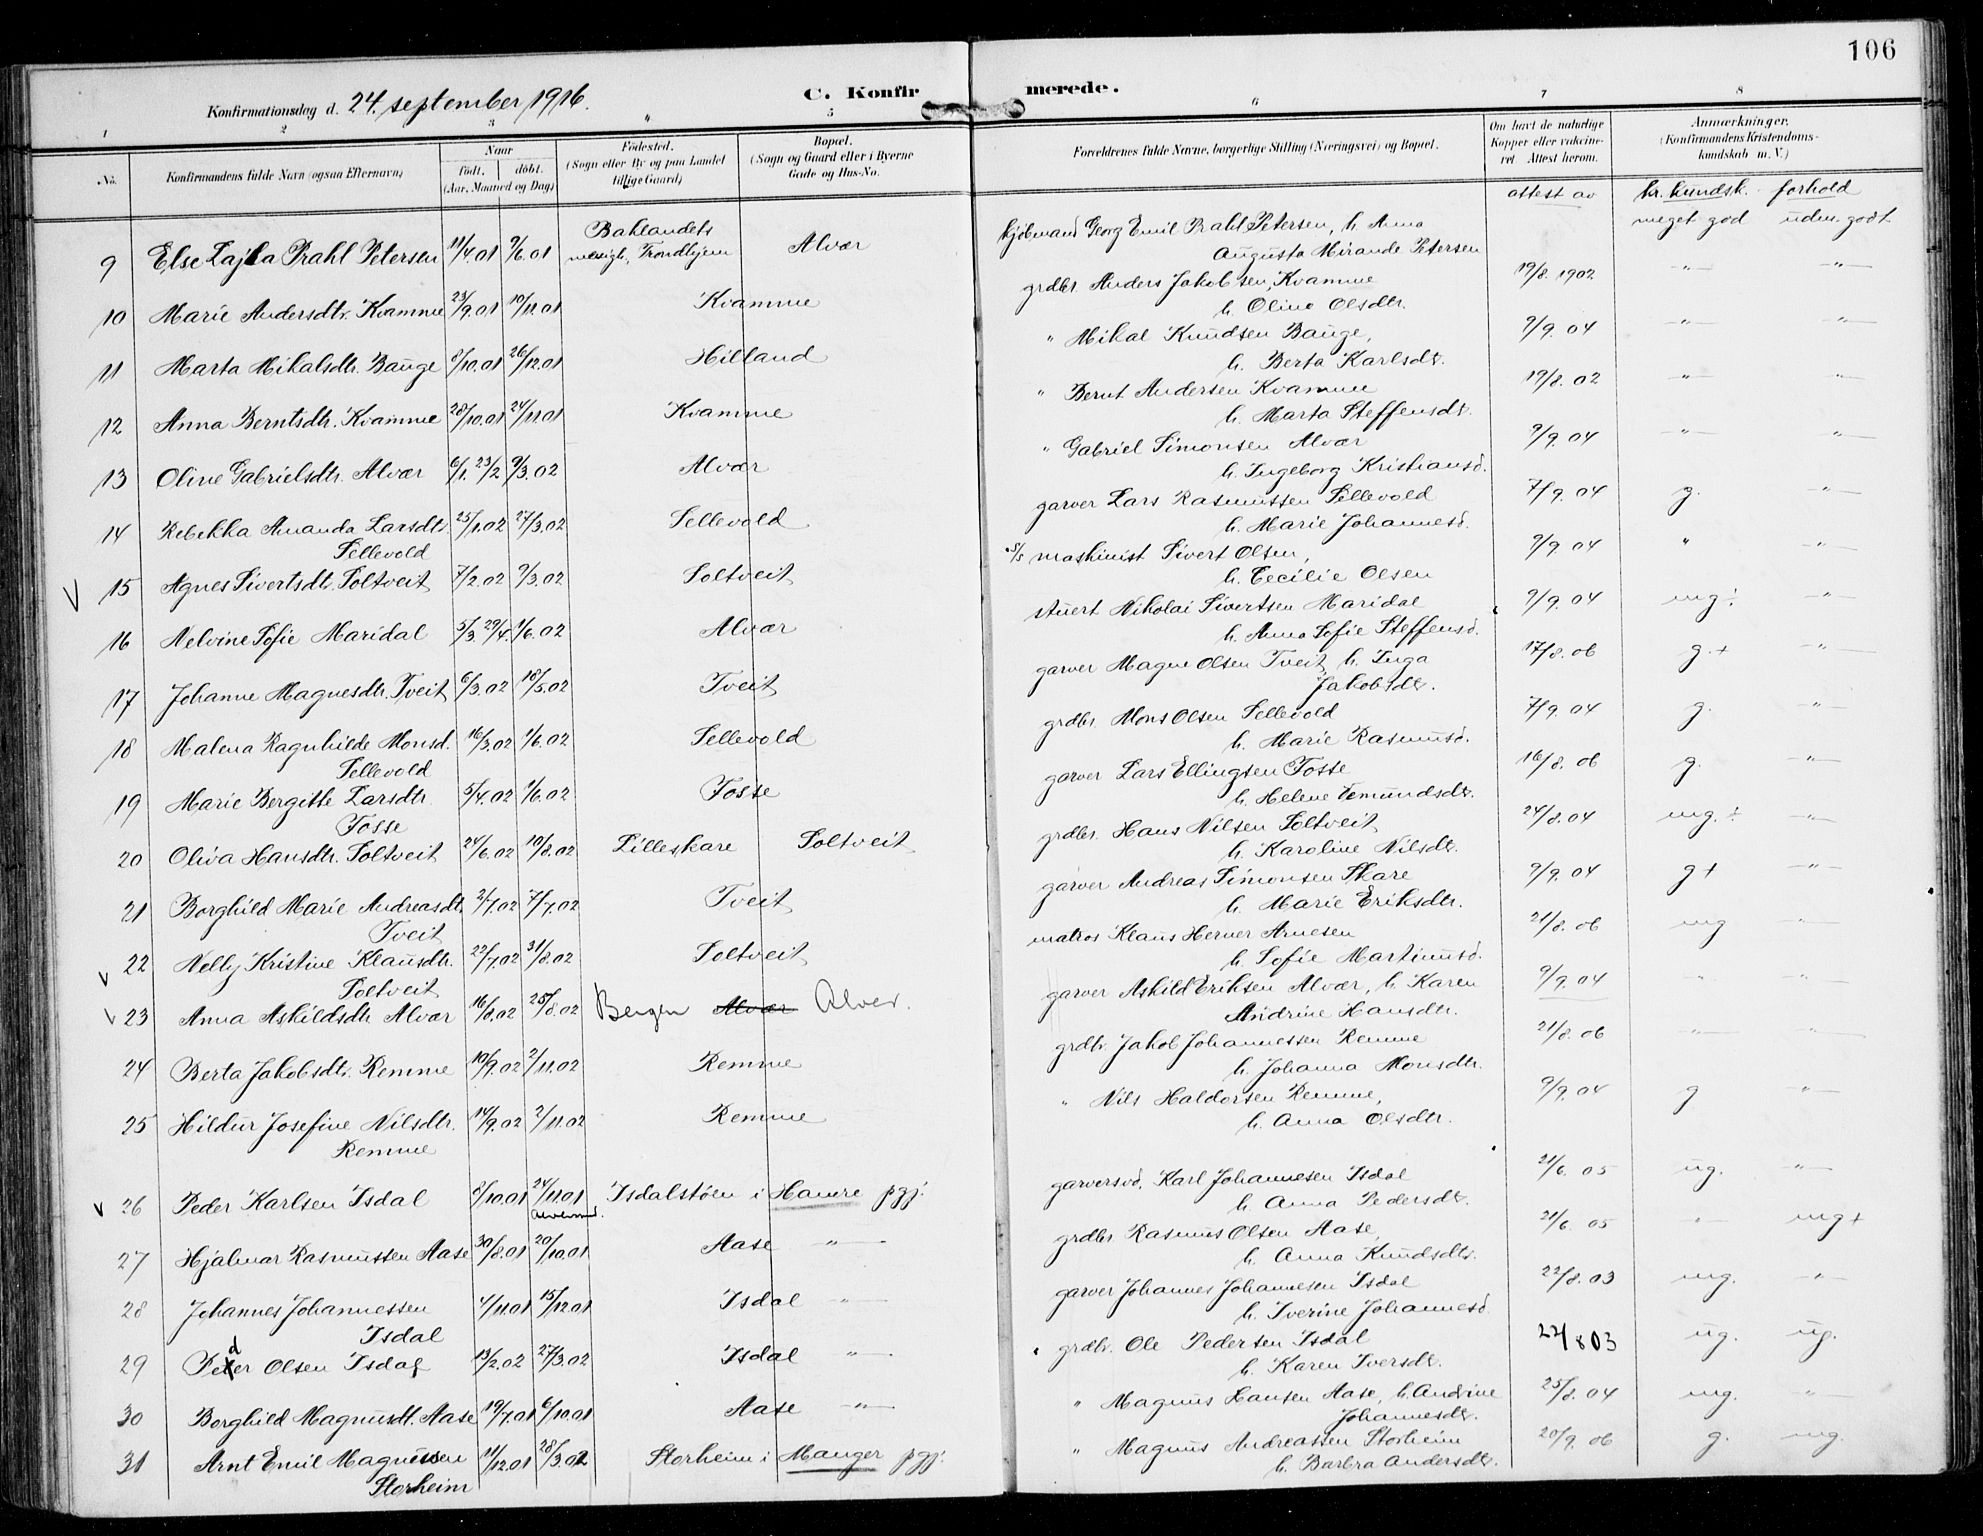 106
Konfirmationsdag d. 24. september 1916.
C. Konfirmerede.
1 2 3 " 5 6 7 8
No. Konfirmandens fulde Navn (ogsaa Efternavn) Naar födt. döbt. (Aar, Maaned og Dag) Födested. (Sogn eller By og paa Landet tillige Gaard) Bopæl. (Sogn og Gaard eller i Byerne Gade og Hus-No. Forældrenes fulde Navne, borgerlige Stilling (Næringsvei) og Bopæl. Om havt de naturlige Kopper eller vakcineret Attest herom. Anmærkninger. (Konfirmandens Kristendomskundskab m. V.)
attest av kr. kundsk. forhold
9 Else Lajla Prahl Petersen 11/4.01 9/6.01 Baklandets menigh., Trondhjem Alvær kjöbmand Georg Emil Prahl Petersen, h. Anna Augusta Mirande Petersen meget god uden. godt
10 Marie Andersdtr. Kvamme 23/9.01 10/11.01 Kvamme grdbr. Anders Jakobsen Kvamme h. Oline Olsdtr. 19/8. 1902 -"- -"-
11 Marta Mikalsdtr. Bauge 8/10.01 26/12.01 Hilland " Mikal Knudsen Bauge, h. Berta Karlsdtr. 9/9. 04 -"- -"-
12 Anna Berntsdtr. Kvamme 28/10.01 24/11.01 Kvamme " Bernt Andersen Kvamme h. Marta Steffensdtr. 19/8. 02 -"- -"-
13 Oline Gabrielsdtr. Alvær 6/1. 23/2 9/3.02 Alvær " Gabriel Simonsen Alvær h. Ingeborg Kristiansd. 9/9. 04 -"- -"-
14 Rebekka Amanda Larsdtr. Sellevold 25/1.02 27/3.02 Sellevold garver Lars Rasmussen Sellevold h. Marie Johannesd. 7/9. 04 g. -"-
V 15 Agnes Sivertsdtr. Soltveit 7/2.02 9/3.02 Soltveit s/s maskinist Sivert Olsen, h. Cecilie Olsen 9/9. 04 " -"-
16 Nelvine Sofie Maridal 5/3. 29/4. 1/6.02 Alvær stuert Nikolai Sivertsen Maridal h. Anna Sofie Steffensd. 9/9. 04 mg÷ -"-
17 Johanne Magnesdtr. Tveit 6/3.02 18/5.02 Tveit garver Magne Olsen Tveit, h. Inga Jakobsdtr. 17/8. 06 g.+ -"-
18 Malena Ragnhilde Monsd. Sellevold 16/3.02 1/6.02 Sellevold grdbr. Mons Olsen Sellevold h. Marie Rasmusd. 7/9. 04 g. -"-
19 Marie Bergitte Larsdtr. Fosse 5/4.02 1/6.02 Fosse garver Lars Ellingsen Fosse h. Helene Æmundsdtr. 16/8. 06 g. -"-
20 Oliva Hansdtr. Soltveit 24/6.02 10/8.02 Lilleskare Soltveit grdbr. Hans Nilsen Soltveit h. Karoline Nilsdtr. 24/8.04 mg.÷ -"-
21 Borghild Marie Andreasdtr. Tveit 2/7.02 7/7.02 Tveit garver Andreas Simonsen Skare h. Marie Eriksdtr. 9/9. 04 g+ -"-
V 22 Nelly Kristine Klausdtr. Soltveit 22/7.02 31/8.02 Soltveit matros Klaus Herner Arnesen h. Sofie Martinusd. 21/8. 06 mg -"-
V 23 Anna Askildsdtr Alvær 16/8.02 25/8.02 Bergen Alvær Alver. garver Askild Eriksen Alvær, h. Karen Andrine Hansdtr. 9/9. 04 " -"-
24 Berta Jakobsdtr. Remme 10/9.02 2/11.02 Remme grdbr. Jakob Johannessen Remme h. Johanna Monsdtr. 21/8. 06 -"- -"-
25 Hildur Josefine Nilsdtr. Remme 14/9.02 2/11.02 Remme " Nils Haldorsen Remme, h. Anna Olsdtr. 9/9. 04 g -"-
V 26 Peder Karlsen Isdal 8/10.01 24/11.01 Alversund. Isdalstöen i Hamre pgj. garversvd. Karl Johannesen Isdal h. Anna Pedersdtr. 21/6. 05 ug. -"-
27 Hjalmar Rasmussen Aase 30/8.01 20/10.01 Aase -"- grdbr. Rasmus Olsen Aase, h. Anna Knudsdtr. 21/6. 05 -"- mg+
28 Johannes Johannessen Isdal 4/11.01 15/12.01 Isdal -"- garver Johannes Johannesen Isdal h. Iverine Johannesd. 22/8. 03 mg. -"-
29 Peder Olsen Isdal 13/2.02 27/3.02 Isdal -"- grdbr. Ole Pedersen Isdal h. Karen Iversdtr. 22/8 03 ug. ug.
30 Borghild Magnusdt. Aase 19/7.01 6/10.01 Aase -"- " Magnus Hansen Aase, h. Andrine Johannesdtr. 25/8. 04 mg. -"-
31 Arnt Emil Magnussen Storheim 11/12.01 28/3.02 Storheim i Manger pgj. " Magnus Andreassen Storheim h. Barbra Andersdtr. 20/9. 06 g. mg.